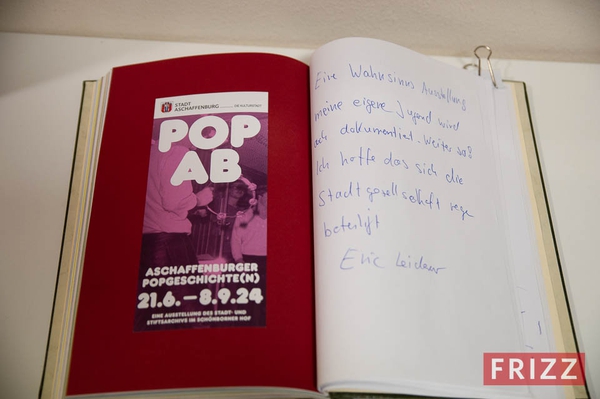 STADT
ASCHAFFENBURG
POP
AB
ASCHAFFENBURGER
POPGESCHICHTE(N)
21.6.—8.9.24
EINE AUSSTELLUNG DES STADT- UND
STIFTSARCHIVS IM SCHÖNBORNER HOF
Eine Wahnsinns Ausstellung
meine eigene Jugend wird
dokumentiert. Weiter so!
Ich hoffe das sich die
Stadtgesellschaft rege
beteiligt
Eric
FRIZZ